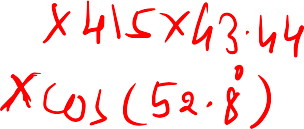 ×415×43.44
×cos(52.8°)